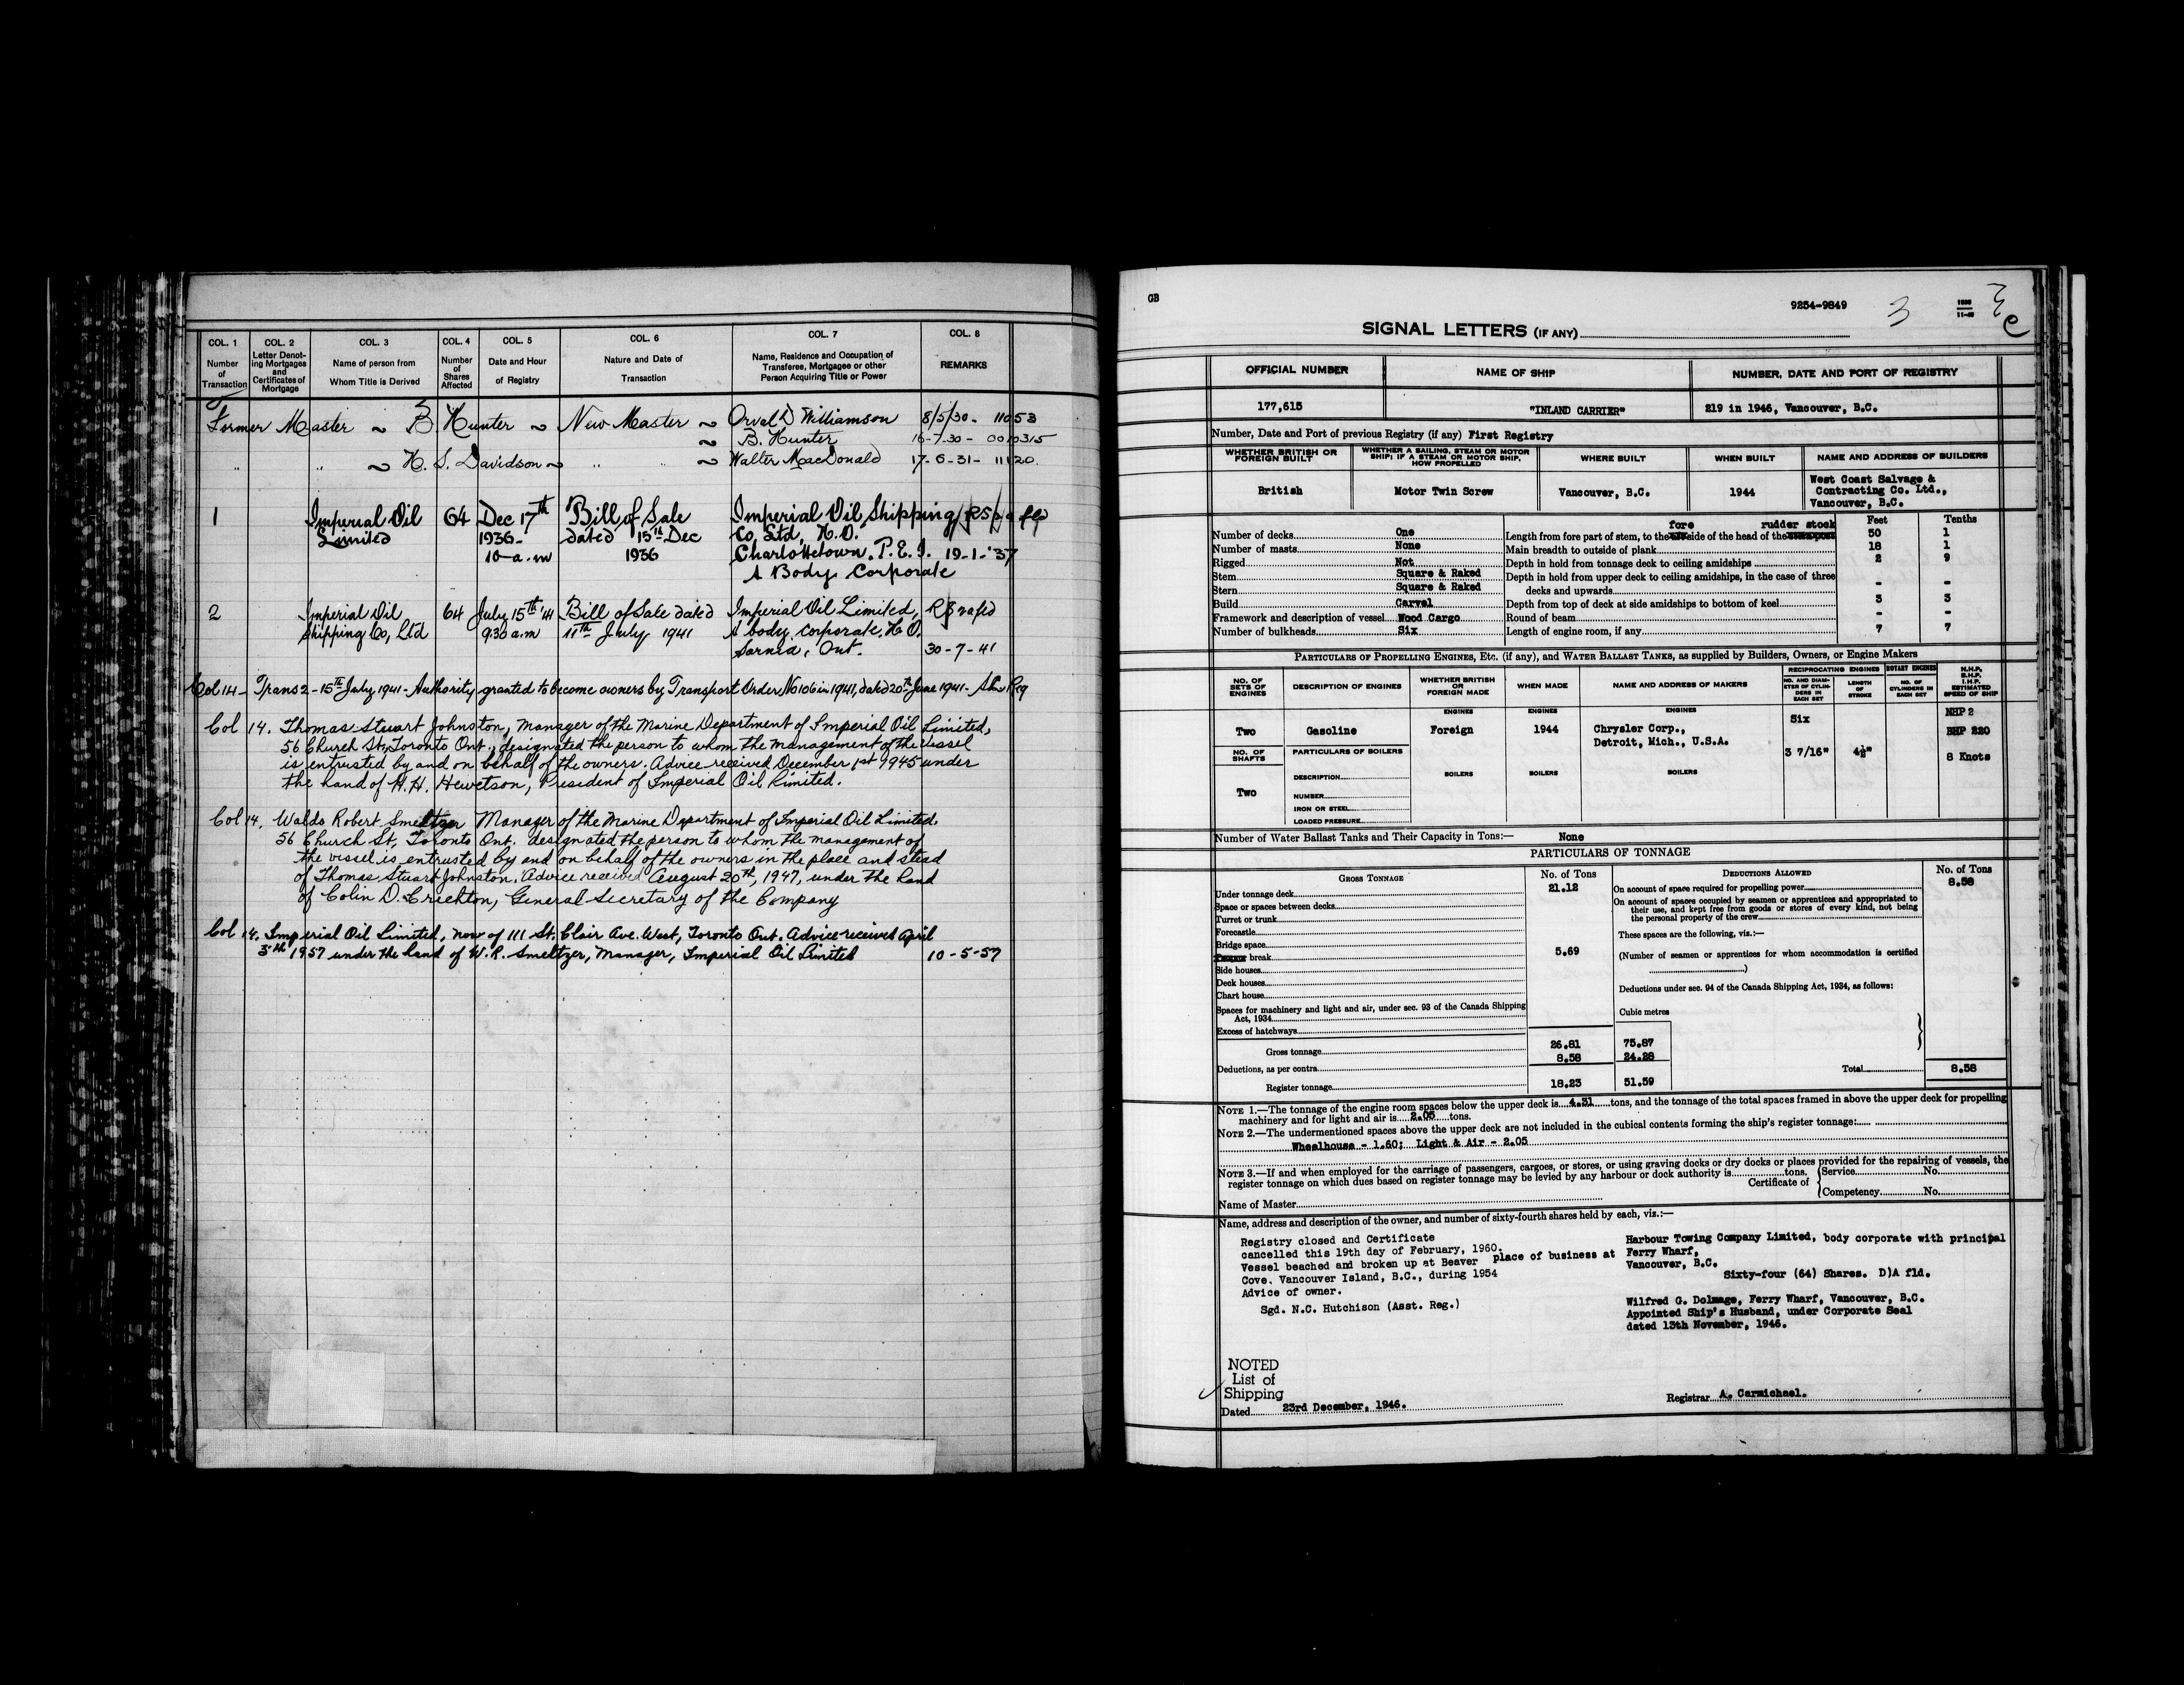 COL. 1 COL. 2 COL. 3 COL. 4 COL. 5 COL. 6 COL. 7 COL. 8
Number of Transaction
Letter Denoting Mortgages and Certificates of Mortgage
Name of person from Whom Title is Derived
Number of Shares Affected
Date and Hour of Registry
Nature and Date of Transaction
Name, Residence and Occupation of Transferee, Mortgagee or other Person Acquiring Title or Power
REMARKS
Former Master ~ B. Hunter ~ New Master ~ Orval D Williamson 8/5/30 - 11053
~ B. Hunter 16-7-30 - 0010315
" " ~ H. S. Davidson ~ " " ~ Walter MacDonald 17-6-31 - 11120
1 Imperial Oil 64 Dec 17th Bill of Sale Imperial Oil Shipping
Limited 1936- dated 15th Dec Co, Ltd, H.O.
10-a.m 1936 Charlottetown, P.E.I. 19-1-'37
A Body Corporate
2 Imperial Oil 64 July 15th '41 Bill of Sale dated Imperial Oil Limited,
Shipping Co, Ltd 9:30 a.m 11th July 1941 A body corporate, H.O.
Sarnia, Ont. 30-7-41
Col 14 - Trans 2 - 15th July 1941 - Authority granted to become owners by Transport Order No 106 in 1941, dated 20th June 1941 - Reg
Col 14. Thomas Stuart Johnston, Manager of the Marine Department of Imperial Oil Limited,
56 Church St, Toronto Ont., designated the person to whom the management of the vessel
is entrusted by and on behalf of the owners. Advice received December 1st 1945 under
the hand of H. H. Hewetson, President of Imperial Oil Limited.
Col 14. Waldo Robert Smeltzer Manager of the Marine Department of Imperial Oil Limited.
56 Church St, Toronto Ont. designated the person to whom the management of
the vessel is entrusted by and on behalf of the owners in the place and stead
of Thomas Stuart Johnston. Advice received August 20th, 1947, under the hand
of Colin D. Crichton, General Secretary of the Company
Col 14. Imperial Oil Limited, now of 111 St. Clair Ave. West, Toronto Ont. Advice received April
5th 1957 under the hand of W. R. Smeltzer, Manager, Imperial Oil Limited 10-5-57
GB
9254-9849
3
SIGNAL LETTERS (IF ANY)
OFFICIAL NUMBER NAME OF SHIP NUMBER, DATE AND PORT OF REGISTRY
177,615 "INLAND CARRIER" 219 in 1946, Vancouver, B.C.
Number, Date and Port of previous Registry (if any) First Registry
WHETHER BRITISH OR FOREIGN BUILT
WHETHER A SAILING, STEAM OR MOTOR SHIP; IF A STEAM OR MOTOR SHIP, HOW PROPELLED
WHERE BUILT
WHEN BUILT
NAME AND ADDRESS OF BUILDERS
British Motor Twin Screw Vancouver, B.C. 1944
West Coast Salvage &
Contracting Co. Ltd.,
Vancouver, B.C.
Feet Tenths
Number of decks One
Number of masts None
Rigged Not
Stem Square & Raked
Stern Square & Raked
Build Carvel
Framework and description of vessel Wood Cargo
Number of bulkheads Six
fore rudder stock
Length from fore part of stem, to the side of the head of the 50 1
Main breadth to outside of plank 18 1
Depth in hold from tonnage deck to ceiling amidships 2 9
Depth in hold from upper deck to ceiling amidships, in the case of three
decks and upwards - -
Depth from top of deck at side amidships to bottom of keel 3 3
Round of beam - -
Length of engine room, if any 7 7
PARTICULARS OF PROPELLING ENGINES, ETC. (if any), and WATER BALLAST TANKS, as supplied by Builders, Owners, or Engine Makers
NO. OF SETS OF ENGINES
DESCRIPTION OF ENGINES
WHETHER BRITISH OR FOREIGN MADE
WHEN MADE
NAME AND ADDRESS OF MAKERS
RECIPROCATING ENGINES
NO. AND DIAMETER OF CYLINDERS IN EACH SET
LENGTH OF STROKE
ROTARY ENGINES
NO. OF CYLINDERS IN EACH SET
N.H.P. B.H.P. I.H.P. ESTIMATED SPEED OF SHIP
ENGINES ENGINES ENGINES
Two Gasoline Foreign 1944 Chrysler Corp.,
Detroit, Mich., U.S.A.
Six
3 7/16" 4½"
NHP 2
BHP 220
8 Knots
NO. OF SHAFTS
Two
PARTICULARS OF BOILERS
DESCRIPTION
NUMBER
IRON OR STEEL
LOADED PRESSURE
BOILERS BOILERS BOILERS
Number of Water Ballast Tanks and Their Capacity in Tons:— None
PARTICULARS OF TONNAGE
GROSS TONNAGE No. of Tons DEDUCTIONS ALLOWED No. of Tons
Under tonnage deck 21.12
Space or spaces between decks
Turret or trunk
Forecastle
Bridge space
break 5.69
Side houses
Deck houses
Chart house
Spaces for machinery and light and air, under sec. 93 of the Canada Shipping
Act, 1934
Excess of hatchways
On account of space required for propelling power 8.58
On account of spaces occupied by seamen or apprentices and appropriated to
their use, and kept free from goods or stores of every kind, not being
the personal property of the crew
These spaces are the following, viz.:—
(Number of seamen or apprentices for whom accommodation is certified
)
Deductions under sec. 94 of the Canada Shipping Act, 1934, as follows:
Cubic metres
Gross tonnage 26.81 75.87
Deductions, as per contra 8.58 24.28
Register tonnage 18.23 51.59
Total 8.58
NOTE 1.—The tonnage of the engine room spaces below the upper deck is 4.31 tons, and the tonnage of the total spaces framed in above the upper deck for propelling
machinery and for light and air is 2.05 tons.
NOTE 2.—The undermentioned spaces above the upper deck are not included in the cubical contents forming the ship's register tonnage:
Wheelhouse - 1.60; Light & Air - 2.05
NOTE 3.—If and when employed for the carriage of passengers, cargoes, or stores, or using graving docks or dry docks or places provided for the repairing of vessels, the
register tonnage on which dues based on register tonnage may be levied by any harbour or dock authority is tons.
Certificate of Service No.
Competency No.
Name of Master
Name, address and description of the owner, and number of sixty-fourth shares held by each, viz.:—
Registry closed and Certificate
cancelled this 19th day of February, 1960.
Vessel beached and broken up at Beaver
Cove, Vancouver Island, B.C., during 1954
Advice of owner.
Sgd. N.C. Hutchison (Asst. Reg.)
Harbour Towing Company Limited, body corporate with principal
place of business at Ferry Wharf,
Vancouver, B.C.
Sixty-four (64) Shares. D)A fld.
Wilfred G. Dolmage, Ferry Wharf, Vancouver, B.C.
Appointed Ship's Husband, under Corporate Seal
dated 13th November, 1946.
NOTED
List of
Shipping
Dated 23rd December, 1946.
Registrar A. Carmichael.